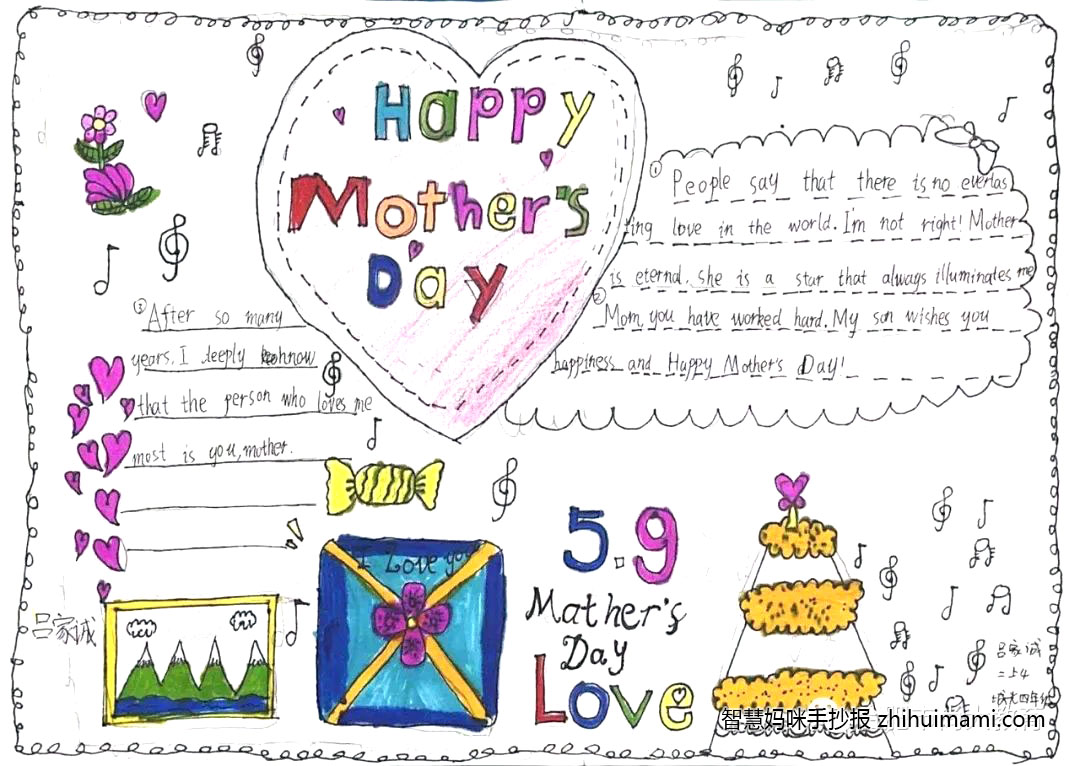 Happy
Mother's
Day
① People say that there is no everlas
ting love in the world. I'm not right! Mother
is eternal. She is a star that always illuminates me
② Mom, you have worked hard. My son wishes you
happiness and Happy Mother's Day!
③ After so many
years, I deeply know
that the person who loves me
most is you, mother.
I Love you
5.9
Mather's
Day
Love
吕家诚
吕家诚
智慧妈咪手抄报 zhihuimami.com